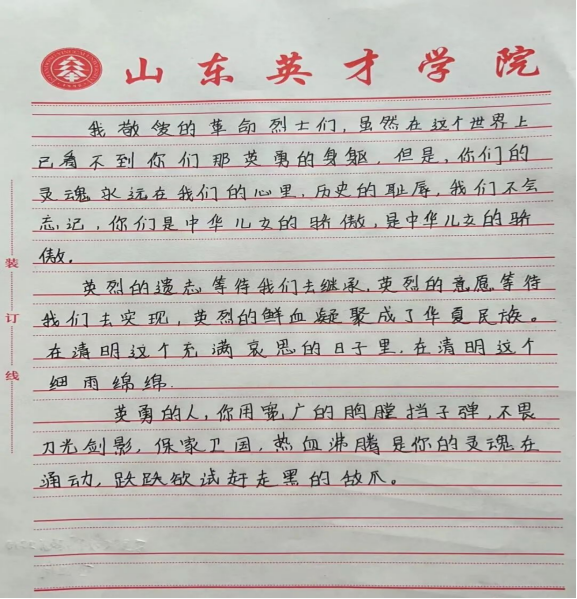 山东英才学院
我敬爱的革命烈士们，虽然在这个世界上
已看不到你们那英勇的身躯，但是，你们的
灵魂永远在我们的心里，历史的耻辱，我们不会
忘记，你们是中华儿女的骄傲，是中华儿女的骄
傲。
英烈的遗志等待我们去继承，英烈的意愿等待
我们去实现，英烈的鲜血凝聚成了华夏民族。
在清明这个充满哀思的日子里，在清明这个
细雨绵绵.
英勇的人，你用宽广的胸膛挡子弹，不畏
刀光剑影，保家卫国，热血沸腾是你的灵魂在
涌动，跃跃欲试赶走黑的敌爪。
装
订
线